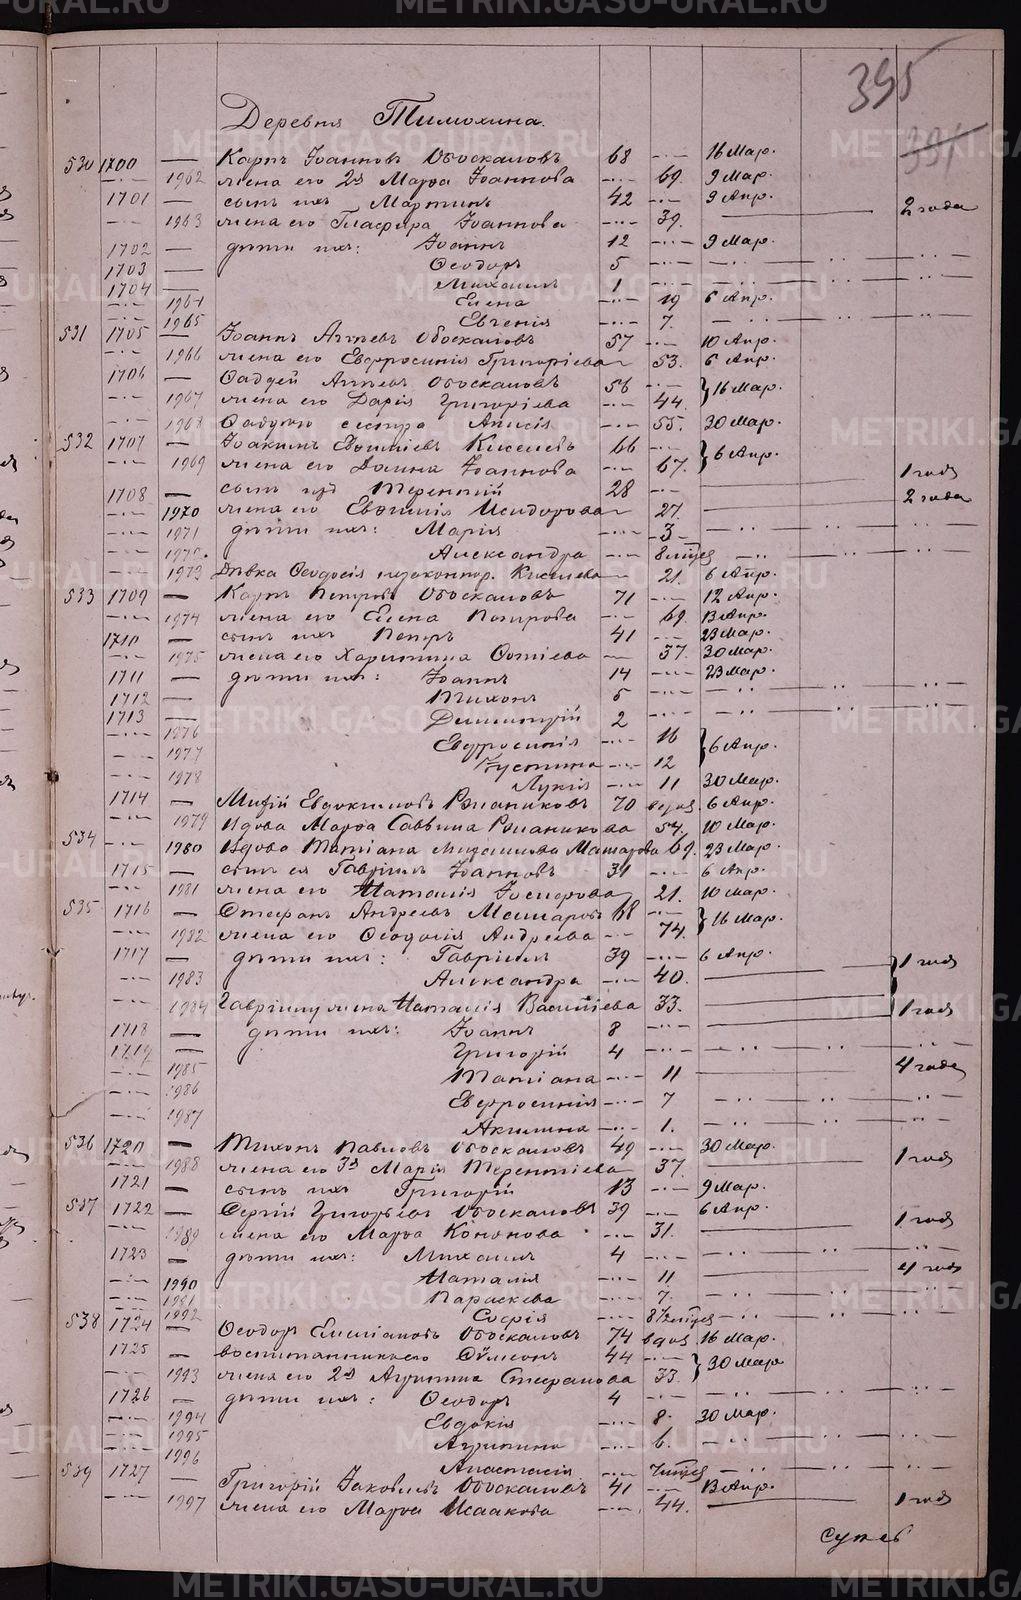 395
391
Деревня Тимохина.
530 1700 — Карпъ Іоанновъ Обоскаловъ 68 —·— 16 Мар.
1962 жена его 2я Марѳа Іоаннова —·— 69. 9 Мар.
1701 — сынъ ихъ Мартинъ 42 —·— 9 Апр.
1963 жена его Гласфира Іоаннова —·— 39. — 2 года
1702 — дѣти ихъ: Іоаннъ 12 —·— 9 Мар.
1703 — Ѳеодоръ 5 —·—
1704 — Михаилъ 1 —·—
—·— 1964 Елена —·— 19 6 Апр.
—·— 1965 Евгенія —·— 7.
531 1705 — Іоаннъ Аггѣевъ Обоскаловъ 57 —·— 10 Апр.
—·— 1966 жена его Евфросинія Григоріева — 53. 6 Апр.
1706 — Ѳаддей Аггѣевъ Обоскаловъ 56 —·— } 16 Мар.
—·— 1967 жена его Дарія Григоріева —·— 44.
—·— 1968 Ѳаддею сестра Анисія —·— 55. 30 Мар.
532 1707 — Іоакимъ Евѳиміевъ Киселевъ 66 —·— } 6 Апр.
—·— 1969 жена его Домна Іоаннова —·— 67.
1708 — сынъ их Терентій 28 —·— — 1 годъ
—·— 1970 жена его Евѳимія Исидорова — 27. — 2 года
—·— 1971 дѣти ихъ: Марія —·— 3
—·— 1972. Александра —·— 8 мѣс
—·— 1973 Дѣвка Ѳеодосія незаконнор. Киселева — 21. 6 Апр.
533 1709 — Карпъ Петровъ Обоскаловъ 71 —·— 12 Апр.
—·— 1974 жена его Елена Петрова —·— 69. 13 Апр.
1710 — сынъ ихъ Петръ 41 —·— 23 Мар.
—·— 1975 жена его Харитина Фотіева — 37. 30 Мар.
1711 — дѣти ихъ: Іоаннъ 14 —·— 23 Мар.
1712 — Тихонъ 5 —·—
1713 — Димитрій 2 —·—
—·— 1976 Евфросинія —·— 16 } 6 Апр.
—·— 1977 Іустина —·— 12
—·— 1978 Лукія —·— 11 30 Мар.
1714 — Евдокимовъ 70 вдов. 6 Апр.
—·— 1979 Вдова Марѳа Саввина 54. 10 Мар.
534 —·— 1980 Вдова Татіана 69. 23 Мар.
1715 — сынъ ея Гавріилъ Іоанновъ 31 —·— 6 Апр.
—·— 1981 жена его Наталія 21. 10 Мар.
535 1716 — Стефанъ Андреевъ 68 —·— } 16 Мар.
—·— 1982 жена его Ѳеодосія Андреева —·— 74.
1717 — дѣти ихъ: Гавріилъ 39 —·— 6 Апр.
—·— 1983 Александра —·— 40. — } 1 годъ
—·— 1984 Гавріилу жена Наталія Васильева 33. — 1 годъ
1718 — дѣти ихъ: Іоаннъ 8 —·—
1719 — Григорій 4 —·—
—·— 1985 Татіана —·— 11 — 4 года
—·— 1986 Евфросинія —·— 7
—·— 1987 Акилина —·— 1.
536 1720 — Тихонъ Павловъ Обоскаловъ 49 —·— 30 Мар.
—·— 1988 жена его 3я Марія Терентіева 37. — 1 годъ
1721 — сынъ ихъ Григорій 13 —·— 9 Мар.
537 1722 — Сергій Григорьевъ Обоскаловъ 39 —·— 6 Апр.
—·— 1989 жена его Марѳа Кононова —·— 31. — 1 годъ
1723 — дѣти ихъ: Михаилъ 4 —·—
—·— 1990 Наталія —·— 11 — 4 года
—·— 1991 Параскева —·— 7.
—·— 1992 Софія —·— 8½ мѣс
538 1724 — Ѳеодоръ Емеліановъ Обоскаловъ 74 вдов. 16 Мар.
1725 — воспитанникъ его Сѵмеонъ 44 —·— } 30 Мар
—·— 1993 жена его 2я Агрипина Стефанова 33.
1726 — дѣти ихъ: Ѳеодоръ 4 —·—
—·— 1994 Евдокія —·— 8. 30 Мар.
—·— 1995 Агрипина —·— 6.
—·— 1996 Анастасія —·— 7 мѣс
539 1727 — Григорій Іаковлевъ Обоскаловъ 41 —·— 13 Апр.
—·— 1997 жена его Марѳа Исаакова —·— 44. — 1 годъ
METRIKI.GASO-URAL.RU